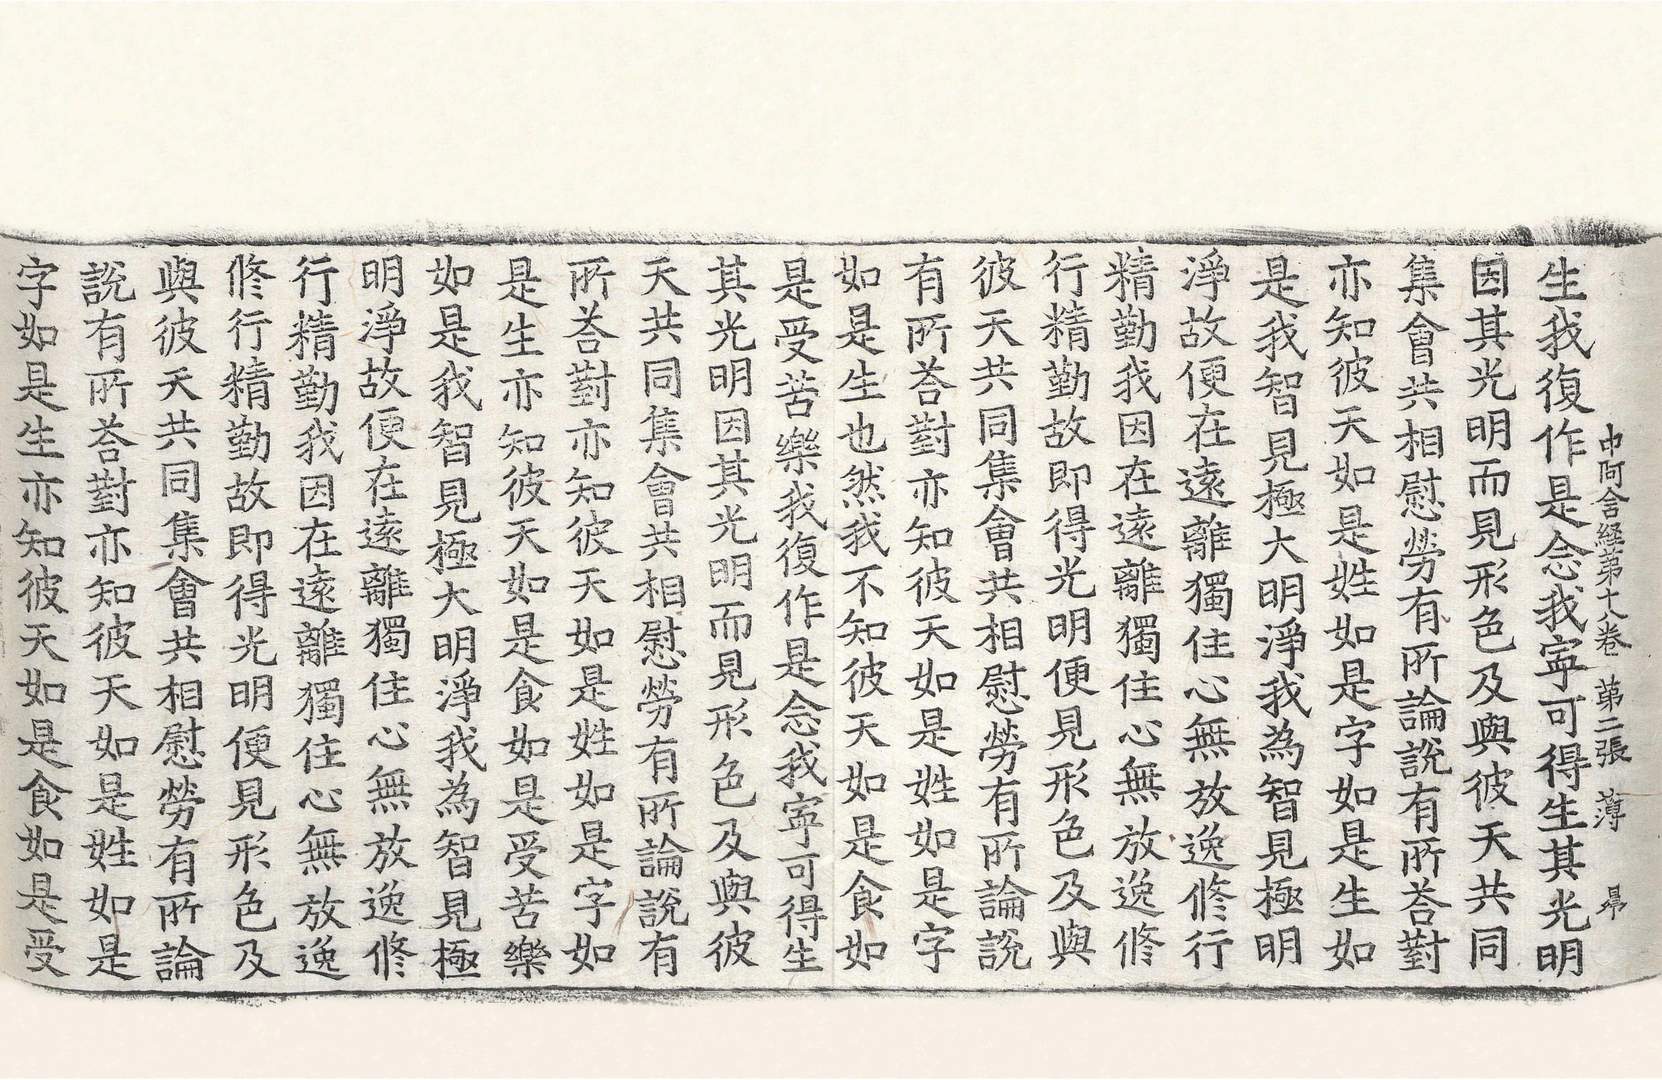 中阿含経苐十八卷 苐二張 薄
生我復作是念我寧可得生其光明
因其光明而見形色及與彼天共同
集會共相慰勞有所論說有所荅對
亦知彼天如是姓如是字如是生如
是我智見極大明淨我為智見極明
淨故便在遠離獨住心無放逸修行
精勤我因在遠離獨住心無放逸修
行精勤故即得光明便見形色及與
彼天共同集會共相慰勞有所論說
有所荅對亦知彼天如是姓如是字
如是生也然我不知彼天如是食如
是受苦樂我復作是念我寧可得生
其光明因其光明而見形色及與彼
天共同集會共相慰勞有所論說有
所荅對亦知彼天如是姓如是字如
是生亦知彼天如是食如是受苦樂
如是我智見極大明淨我為智見極
明淨故便在遠離獨住心無放逸修
行精勤我因在遠離獨住心無放逸
修行精勤故即得光明便見形色及
與彼天共同集會共相慰勞有所論
說有所荅對亦知彼天如是姓如是
字如是生亦知彼天如是食如是受